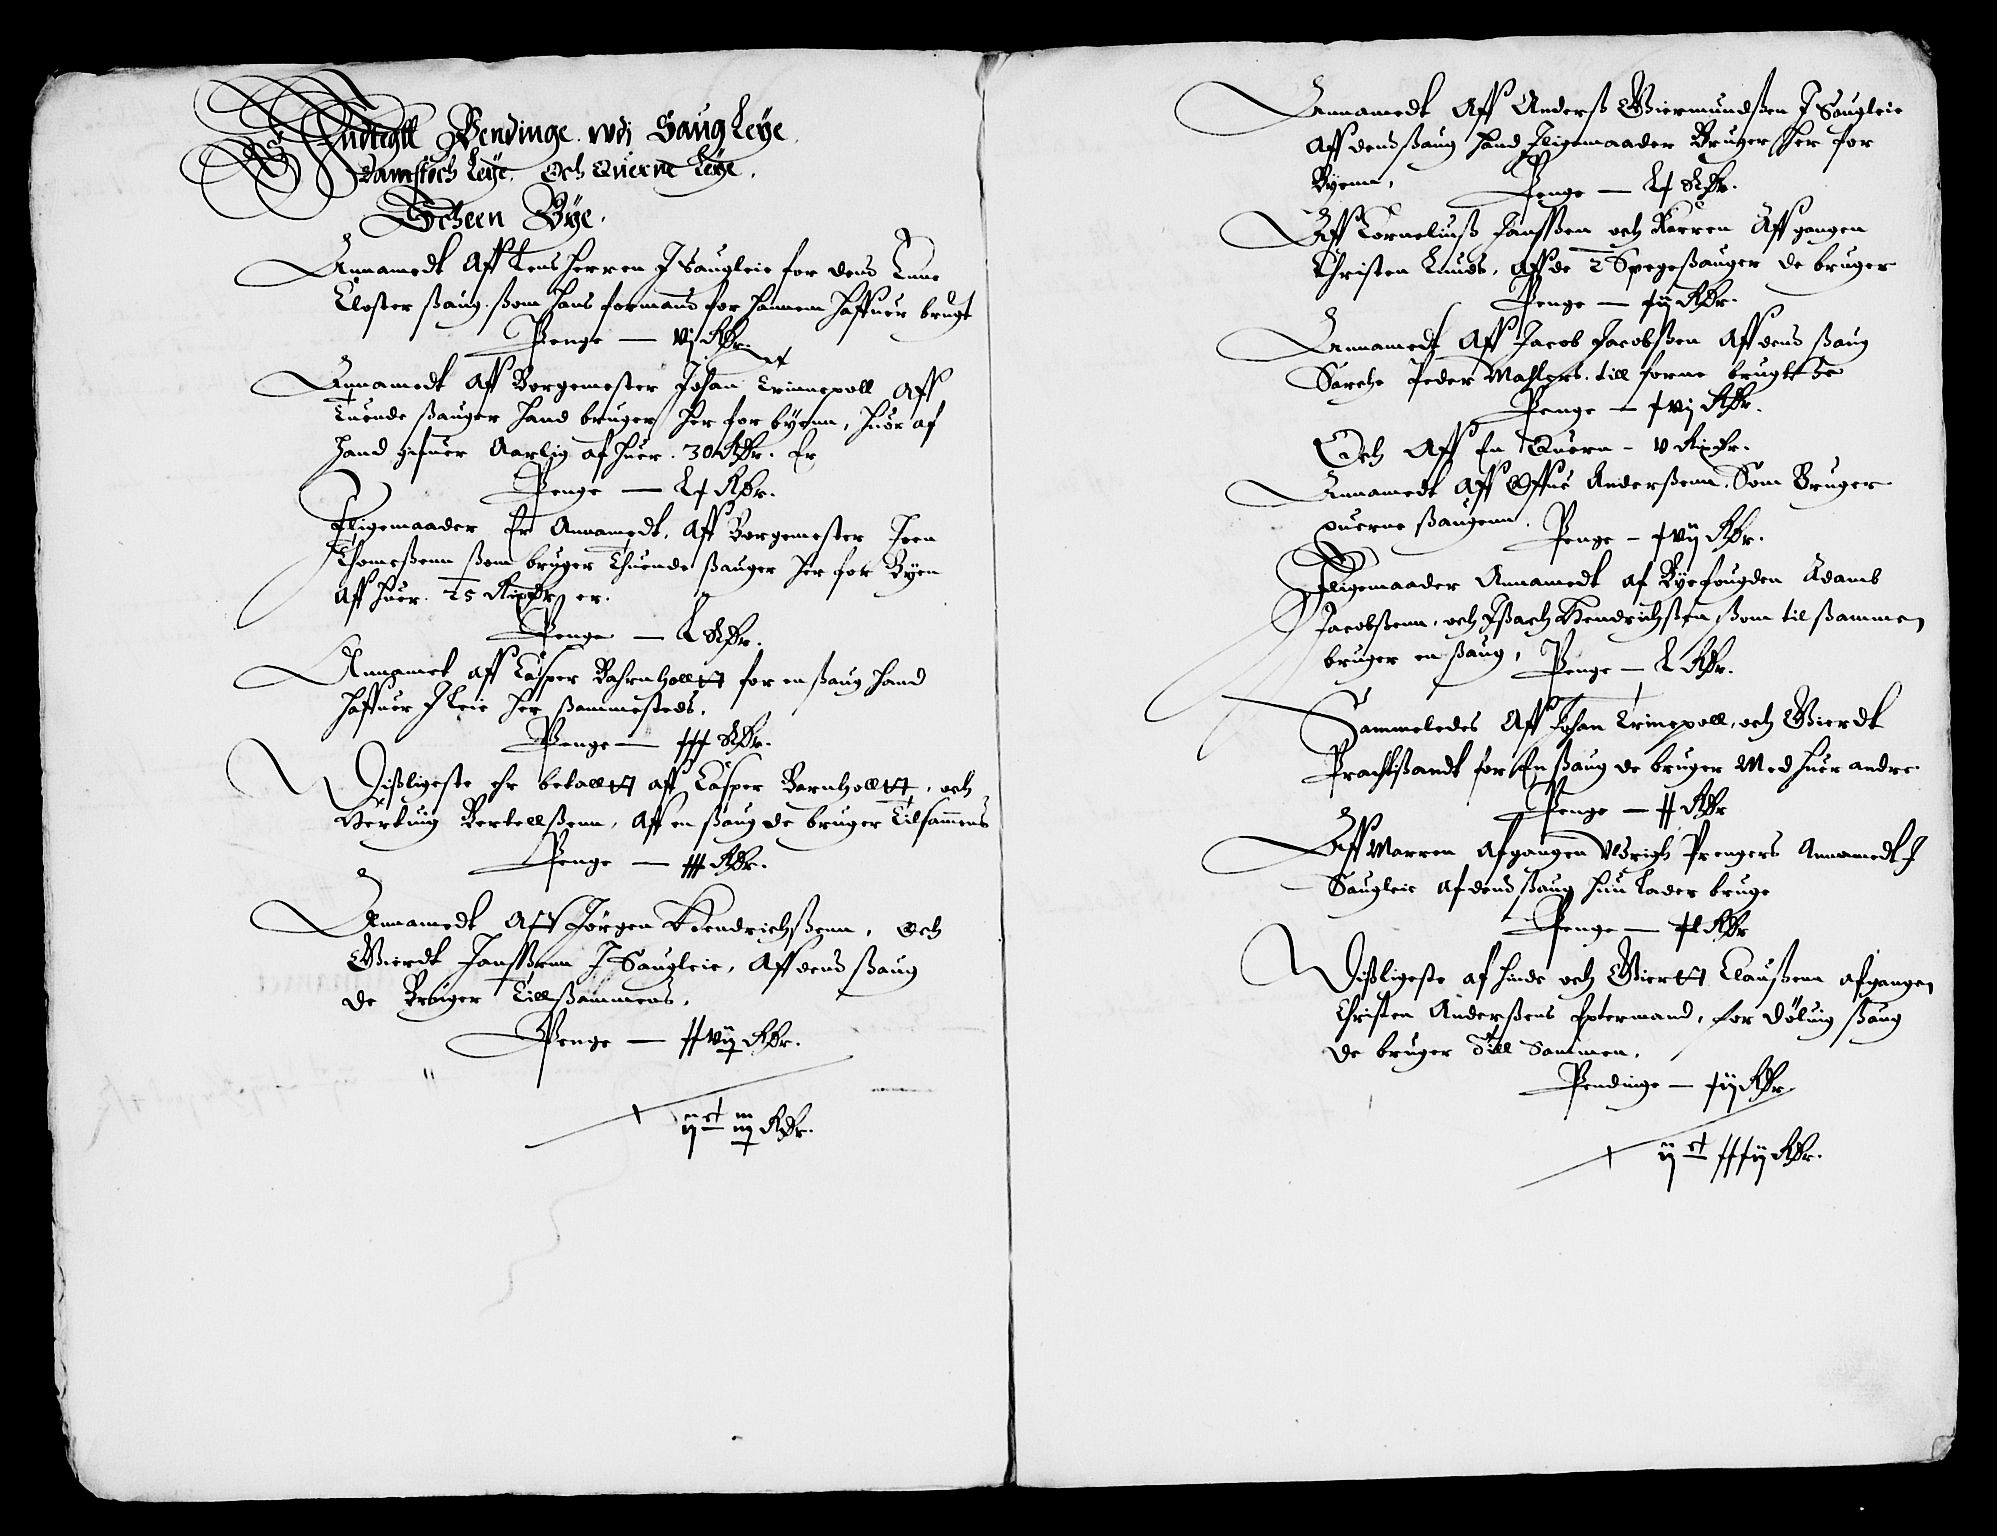 Indtegtt Pendinge wdj Saug Leye
Damstoch Leye. Och Querne Leye.
Scheen Bye.
Annamedt Aff Lens Herren J Saugleie for dend
Closter ßaug. ßom hans formand for hannem haffuer brugt
Penge — vj Rdr.
Annamedt aff Borgemester Johan Trinnepoll Aff
Tuende ßauger hand bruger her for byenn, huor af
hand gifuer Aarlig af huer. 30 Rdr. Er
Penge — Lx Rdr.
Jligemaader Er Annamedt. Aff Borgemester Jeen
Thomeßenn ßom bruger Thuende ßauger her for Byen
Aff huer. 25 Rixdr er.
Penge — L Rdr.
Annamet aff Casper Bahrnholltt for en ßaug hand
haffuer J Leie her ßammesteds.
Penge — xxx Rdr.
Dißligeste ehr betalltt aff Casper Barnholltt, och
Hertuig Bertellßenn, Aff en ßaug de bruger Tilsammens
Penge — xxx Rdr.
Annamedt Aff Jörgen Hendrichßenn, Och
Gierdt Janßenn J Saugleie, Aff dend ßaug
de Bruger Tillßammens.
Penge — xxvij Rdr.
ij ct iij Rdr.
Annamedt Aff Anderß Giermundßen J Saugleie
Aff dend ßaug hand Jligemaader Bruger her for
Byenn, Penge — Lx Rdr.
Aff Corneliuß Janßen och Karren Aff gangen
Christen Lauds, Aff de 2 Spegeßauger de bruger
Penge — xij Rdr.
Annamedt Aff Jacob Jacobßen Aff dend ßaug
Sarche Peder Mahlers. till forne brugtt er
Penge — xvj Rdr.
Och Aff En Quern — v Rixdr.
Annamedt Aff Offue Anderßenn. Som Bruger
querne ßaugenn. Penge — xvij Rdr.
Jligemaader Annamedt af Byefougden Adamb
Jacobßenn, och Jßach Hendrichßen ßom til ßammen
bruger en ßaug, Penge — L Rdr.
Sammeledes Aff Johan Trinepoll, och Gierdt
Prachtßandt for En ßaug de bruger Med huer andre
Penge — xx Rdr
Aff Marren Afgangen Vldrigh Prengers Annamedt J
Saugleie af dend ßaug hun lader bruge
Penge — xl Rdr
Dißligeste af hinde och Giertt Claußenn afgangen
Christen Anderßens Eptermand, for Döluig ßaug
de bruger Till Sammen,
Pendinge — xij Rdr
ij ct xxxij Rdr.